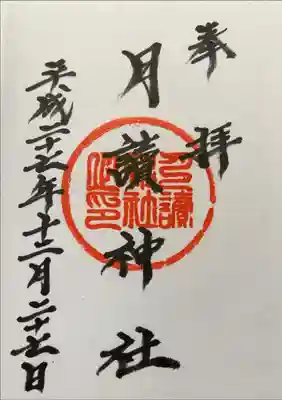 奉拝
月讀神社
平成二十七年十二月二十七日
月讀
神社
之印